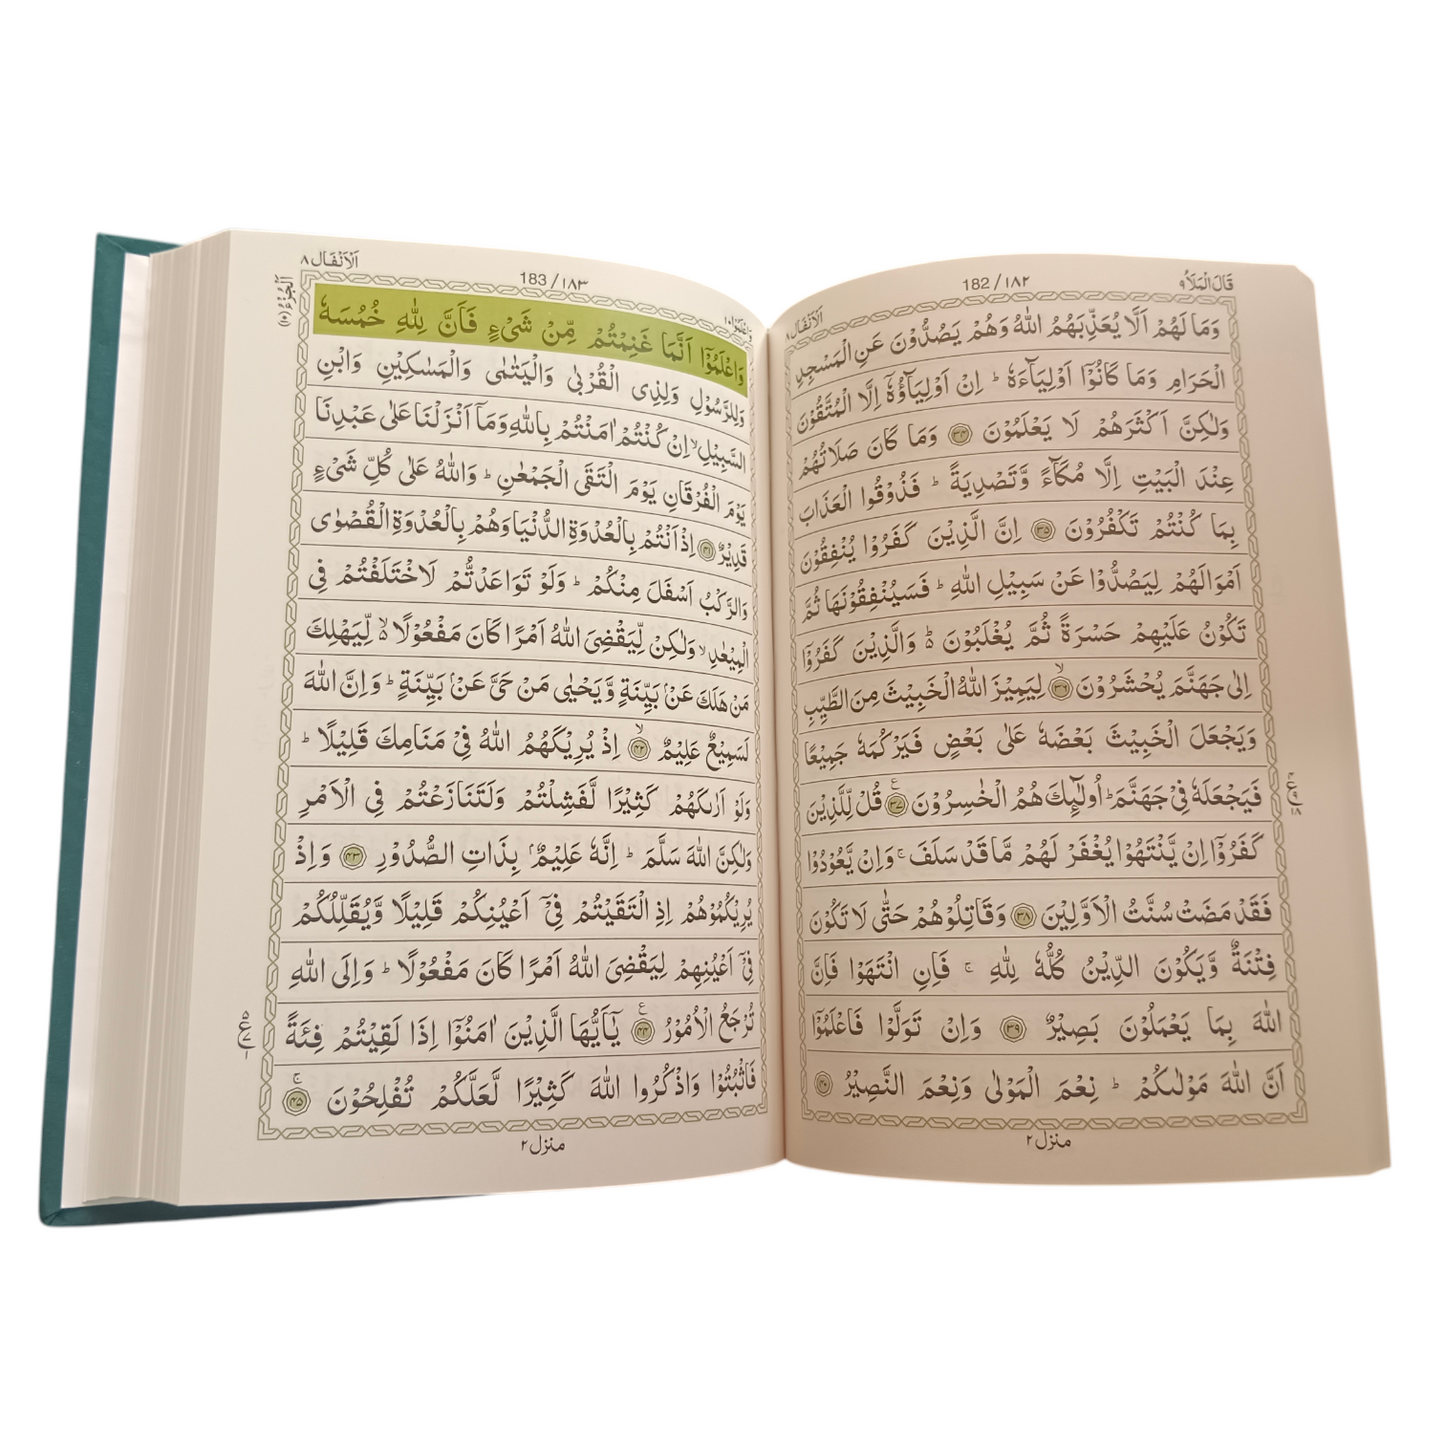 قَالَ الْمَلَاُ ٩
182 / ١٨٢
اَلْاَنْفَال ٨
وَمَا لَهُمْ اَلَّا يُعَذِّبَهُمُ اللّٰهُ وَهُمْ يَصُدُّوْنَ عَنِ الْمَسْجِدِ
الْحَرَامِ وَمَا كَانُوْٓا اَوْلِيَآءَهٗ ؕ اِنْ اَوْلِيَآؤُهٗٓ اِلَّا الْمُتَّقُوْنَ
وَلٰكِنَّ اَكْثَرَهُمْ لَا يَعْلَمُوْنَ ﴿٣٤﴾ وَمَا كَانَ صَلَاتُهُمْ
عِنْدَ الْبَيْتِ اِلَّا مُكَآءً وَّتَصْدِيَةً ؕ فَذُوْقُوا الْعَذَابَ
بِمَا كُنْتُمْ تَكْفُرُوْنَ ﴿٣٥﴾ اِنَّ الَّذِيْنَ كَفَرُوْا يُنْفِقُوْنَ
اَمْوَالَهُمْ لِيَصُدُّوْا عَنْ سَبِيْلِ اللّٰهِ ؕ فَسَيُنْفِقُوْنَهَا ثُمَّ
تَكُوْنُ عَلَيْهِمْ حَسْرَةً ثُمَّ يُغْلَبُوْنَ ؕ۬ وَالَّذِيْنَ كَفَرُوْٓا
اِلٰى جَهَنَّمَ يُحْشَرُوْنَ ﴿٣٦﴾ۙ لِيَمِيْزَ اللّٰهُ الْخَبِيْثَ مِنَ الطَّيِّبِ
وَيَجْعَلَ الْخَبِيْثَ بَعْضَهٗ عَلٰى بَعْضٍ فَيَرْكُمَهٗ جَمِيْعًا
فَيَجْعَلَهٗ فِيْ جَهَنَّمَ ؕ اُولٰٓئِكَ هُمُ الْخٰسِرُوْنَ ﴿٣٧﴾ قُلْ لِّلَّذِيْنَ
كَفَرُوْٓا اِنْ يَّنْتَهُوْا يُغْفَرْ لَهُمْ مَّا قَدْ سَلَفَ ۚ وَاِنْ يَّعُوْدُوْا
فَقَدْ مَضَتْ سُنَّتُ الْاَوَّلِيْنَ ﴿٣٨﴾ وَقَاتِلُوْهُمْ حَتّٰى لَا تَكُوْنَ
فِتْنَةٌ وَّيَكُوْنَ الدِّيْنُ كُلُّهٗ لِلّٰهِ ۚ فَاِنِ انْتَهَوْا فَاِنَّ
اللّٰهَ بِمَا يَعْمَلُوْنَ بَصِيْرٌ ﴿٣٩﴾ وَاِنْ تَوَلَّوْا فَاعْلَمُوْٓا
اَنَّ اللّٰهَ مَوْلٰىكُمْ ؕ نِعْمَ الْمَوْلٰى وَنِعْمَ النَّصِيْرُ ﴿٤٠﴾
منزل ٢
183 / ١٨٣
اَلْاَنْفَال ٨
اَلْجُزْءُ (١٠)
وَاعْلَمُوْٓا اَنَّمَا غَنِمْتُمْ مِّنْ شَيْءٍ فَاَنَّ لِلّٰهِ خُمُسَهٗ
وَلِلرَّسُوْلِ وَلِذِى الْقُرْبٰى وَالْيَتٰمٰى وَالْمَسٰكِيْنِ وَابْنِ
السَّبِيْلِ ۙ اِنْ كُنْتُمْ اٰمَنْتُمْ بِاللّٰهِ وَمَآ اَنْزَلْنَا عَلٰى عَبْدِنَا
يَوْمَ الْفُرْقَانِ يَوْمَ الْتَقَى الْجَمْعٰنِ ؕ وَاللّٰهُ عَلٰى كُلِّ شَيْءٍ
قَدِيْرٌ ﴿٤١﴾ اِذْ اَنْتُمْ بِالْعُدْوَةِ الدُّنْيَا وَهُمْ بِالْعُدْوَةِ الْقُصْوٰى
وَالرَّكْبُ اَسْفَلَ مِنْكُمْ ؕ وَلَوْ تَوَاعَدْتُّمْ لَاخْتَلَفْتُمْ فِى
الْمِيْعٰدِ ۙ وَلٰكِنْ لِّيَقْضِىَ اللّٰهُ اَمْرًا كَانَ مَفْعُوْلًا ۬ۙ لِّيَهْلِكَ
مَنْ هَلَكَ عَنْۢ بَيِّنَةٍ وَّيَحْيٰى مَنْ حَىَّ عَنْۢ بَيِّنَةٍ ؕ وَاِنَّ اللّٰهَ
لَسَمِيْعٌ عَلِيْمٌ ﴿٤٢﴾ۙ اِذْ يُرِيْكَهُمُ اللّٰهُ فِيْ مَنَامِكَ قَلِيْلًا ؕ
وَلَوْ اَرٰىكَهُمْ كَثِيْرًا لَّفَشِلْتُمْ وَلَتَنَازَعْتُمْ فِى الْاَمْرِ
وَلٰكِنَّ اللّٰهَ سَلَّمَ ؕ اِنَّهٗ عَلِيْمٌۢ بِذَاتِ الصُّدُوْرِ ﴿٤٣﴾ وَاِذْ
يُرِيْكُمُوْهُمْ اِذِ الْتَقَيْتُمْ فِيْٓ اَعْيُنِكُمْ قَلِيْلًا وَّيُقَلِّلُكُمْ
فِيْٓ اَعْيُنِهِمْ لِيَقْضِىَ اللّٰهُ اَمْرًا كَانَ مَفْعُوْلًا ؕ وَاِلَى اللّٰهِ
تُرْجَعُ الْاُمُوْرُ ﴿٤٤﴾ يٰٓاَيُّهَا الَّذِيْنَ اٰمَنُوْٓا اِذَا لَقِيْتُمْ فِئَةً
فَاثْبُتُوْا وَاذْكُرُوا اللّٰهَ كَثِيْرًا لَّعَلَّكُمْ تُفْلِحُوْنَ ﴿٤٥﴾ۚ
منزل ٢